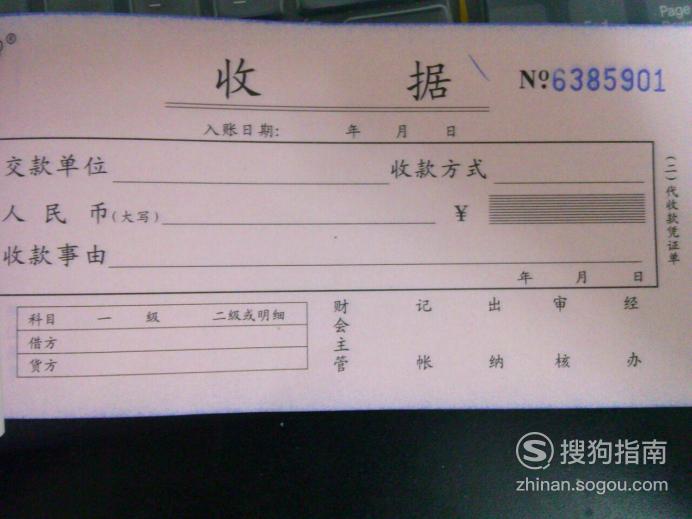 Page
®
收 据 №6385901
入账日期： 年 月 日
交款单位 收款方式
人民币(大写) ¥
收款事由
年 月 日
(二)代收款凭证单
科目 一 级 二级或明细
借方
货方
财会主管 记帐 出纳 审核 经办
搜狗指南
zhinan.sogou.com